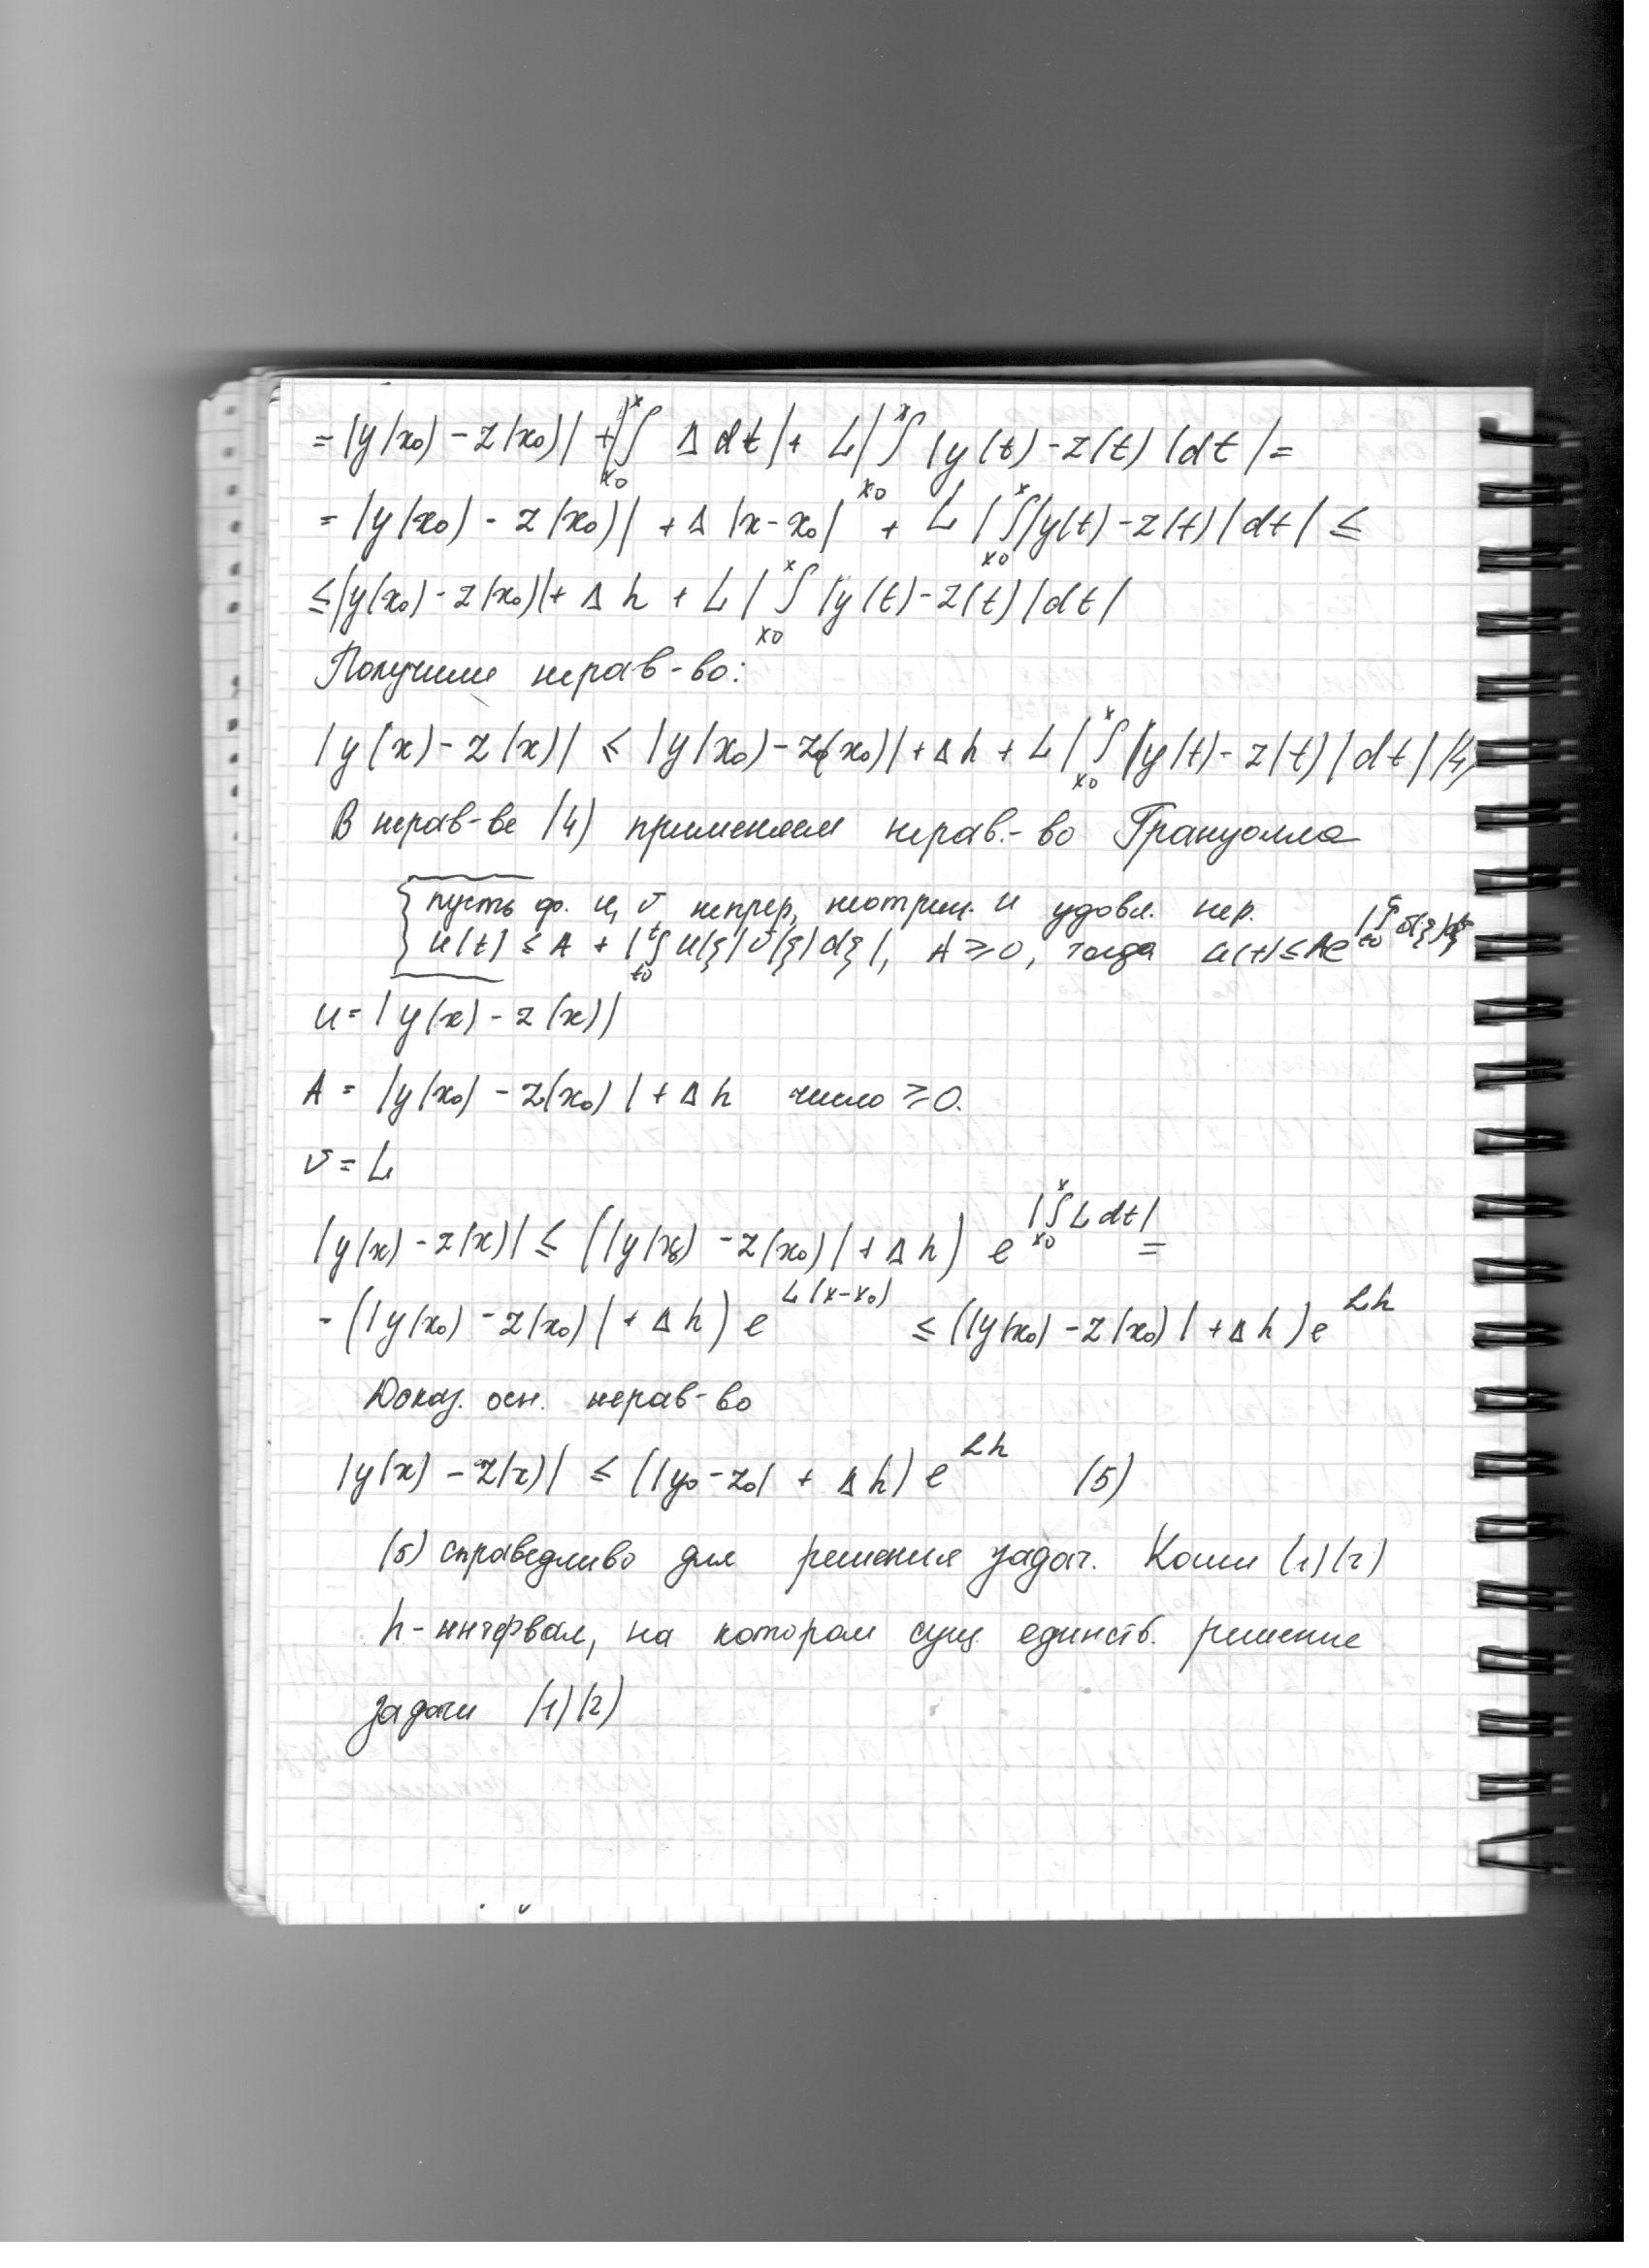 = |y(x₀) - z(x₀)| + |∫ₓ₀ˣ Δ dt| + L|∫ₓ₀ˣ |y(t) - z(t)|dt| =
= |y(x₀) - z(x₀)| + Δ |x-x₀| + L |∫ₓ₀ˣ |y(t) - z(t)|dt| ≤
≤ |y(x₀) - z(x₀)| + Δ h + L |∫ₓ₀ˣ |y(t) - z(t)|dt|
Получили нерав-во:
|y(x) - z(x)| ≤ |y(x₀) - z(x₀)| + Δh + L |∫ₓ₀ˣ |y(t) - z(t)|dt| (4)
В нерав-ве (4) применяем нерав.-во Грануолла
пусть ф. u, v непрер, неотриц. и удовл. нер.
u(t) ≤ A + |∫ₜ₀ᵗ u(ξ)v(ξ)dξ|, A ≥ 0, тогда u(t) ≤ Ae^|∫ₜ₀ᵗ v(ξ)dξ|
u = |y(x) - z(x)|
A = |y(x₀) - z(x₀)| + Δh число ≥ 0.
v = L
|y(x) - z(x)| ≤ (|y(x₀) - z(x₀)| + Δh) e^|∫ₓ₀ˣ L dt| =
- (|y(x₀) - z(x₀)| + Δh) e^L(x-x₀) ≤ (|y(x₀) - z(x₀)| + Δh) e^Lh
Доказ. осн. нерав-во
|y(x) - z(x)| ≤ (|y₀ - z₀| + Δh) e^Lh (5)
(5) справедливо для решения задач. Коши (1)(2)
h-интервал, на котором сущ. единств. решение
задачи (1)(2)